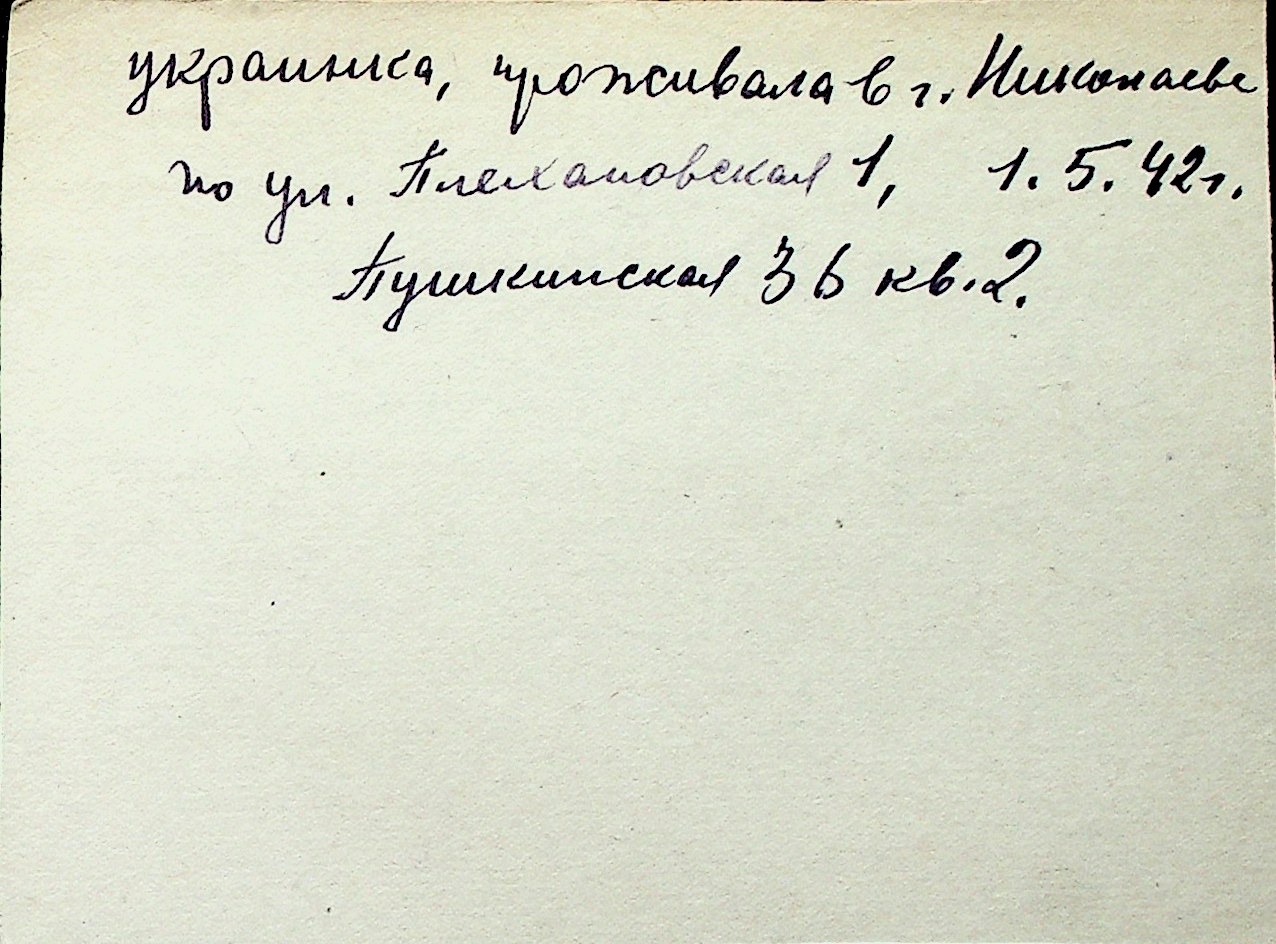 украинка, проживала в г. Николаеве
по ул. Плехановская 1, 1.5.42г.
Пушкинская 36 кв.2.